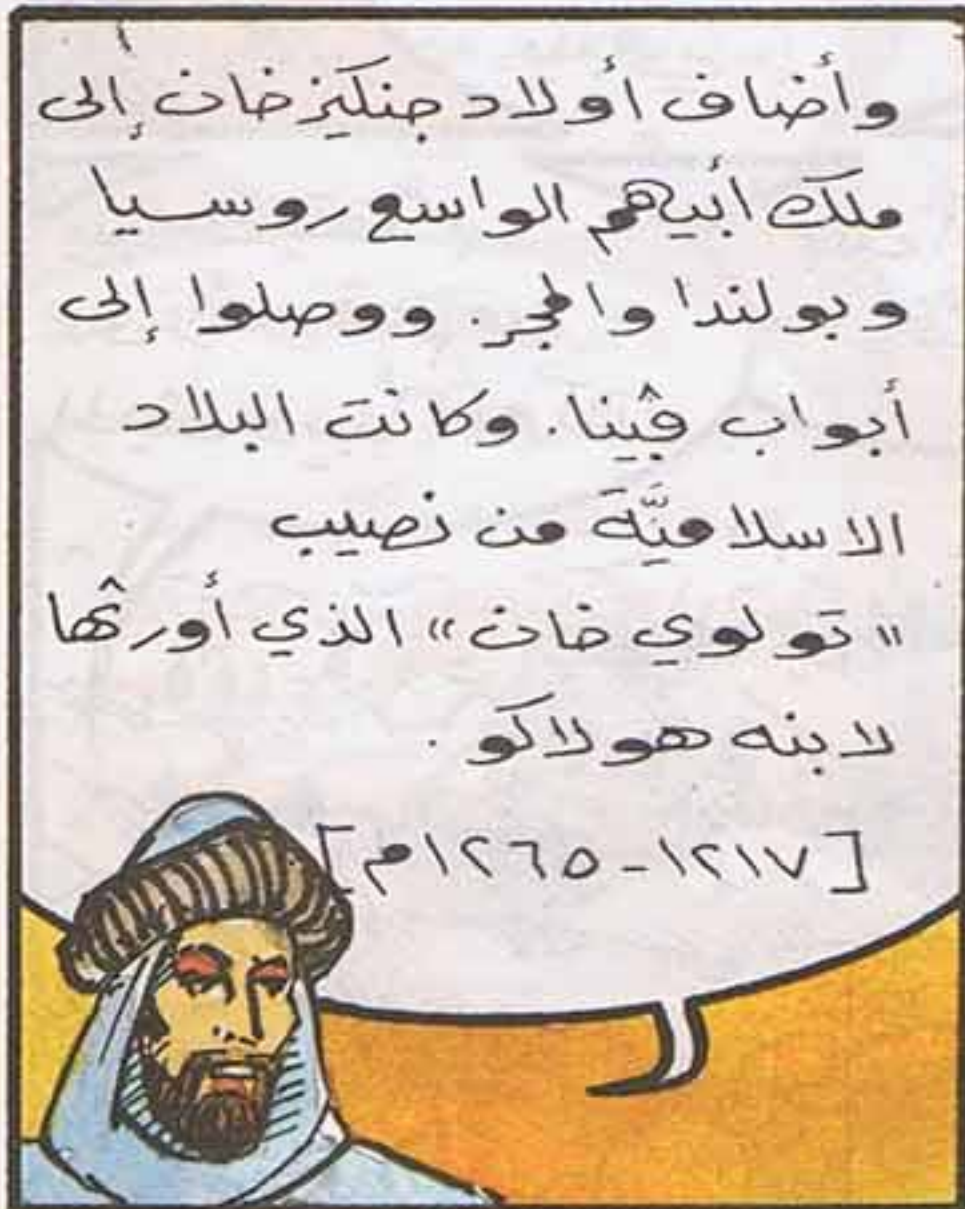 وأضاف أولاد جنكيز خان إلى
ملك أبيهم الواسع روسيا
وبولندا والمجر. ووصلوا إلى
أبواب ڤينا. وكانت البلاد
الاسلاميَّة من نصيب
"تولوي خان" الذي أورثها
لابنه هولاكو.
[١٢١٧-١٢٦٥م]